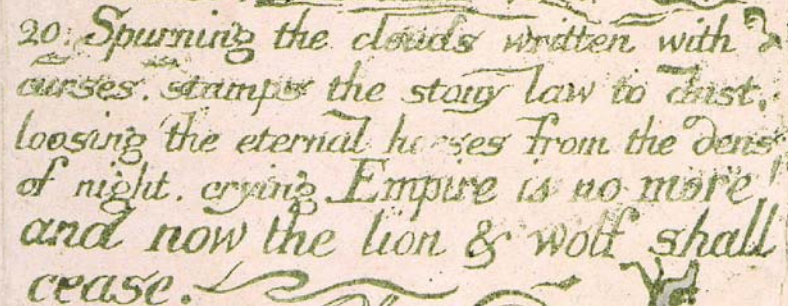 20. Spurning the clouds written with
curses, stamps the stony law to dust,
loosing the eternal horses from the dens
of night, crying Empire is no more!
and now the lion & wolf shall
cease.